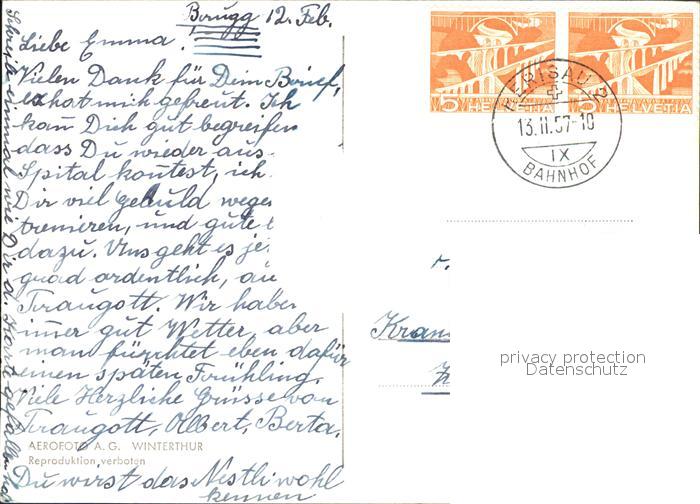 Brugg 12. Feb.
Liebe Emma!
Vielen Dank für Dein Brief,
er hat mich gefreut. Ich
kan Dich gut begreifen
dass Du wieder aus
Spital kontest, ich
Dir viel Geduld wege
trenieren, und gute
dazu. Uns geht es je
grad ordentlich, au
Traugott. Wir habe
imer gut Wetter, aber
man fürchtet eben dafür
einen späten Frühling.
Viele Herzliche Grüsse von
Traugott, Albert, Berta.
AEROFOTO A.G. WINTERTHUR
Reproduktion verboten
Du wirst das Nestli wohl
kennen
Schreibe einmal wie Dir d. Karte gefallen hat
5 HELVETIA
5 HELVETIA
HERISAU 2
13.II.57-10
IX
BAHNHOF
Kran
privacy protection
Datenschutz